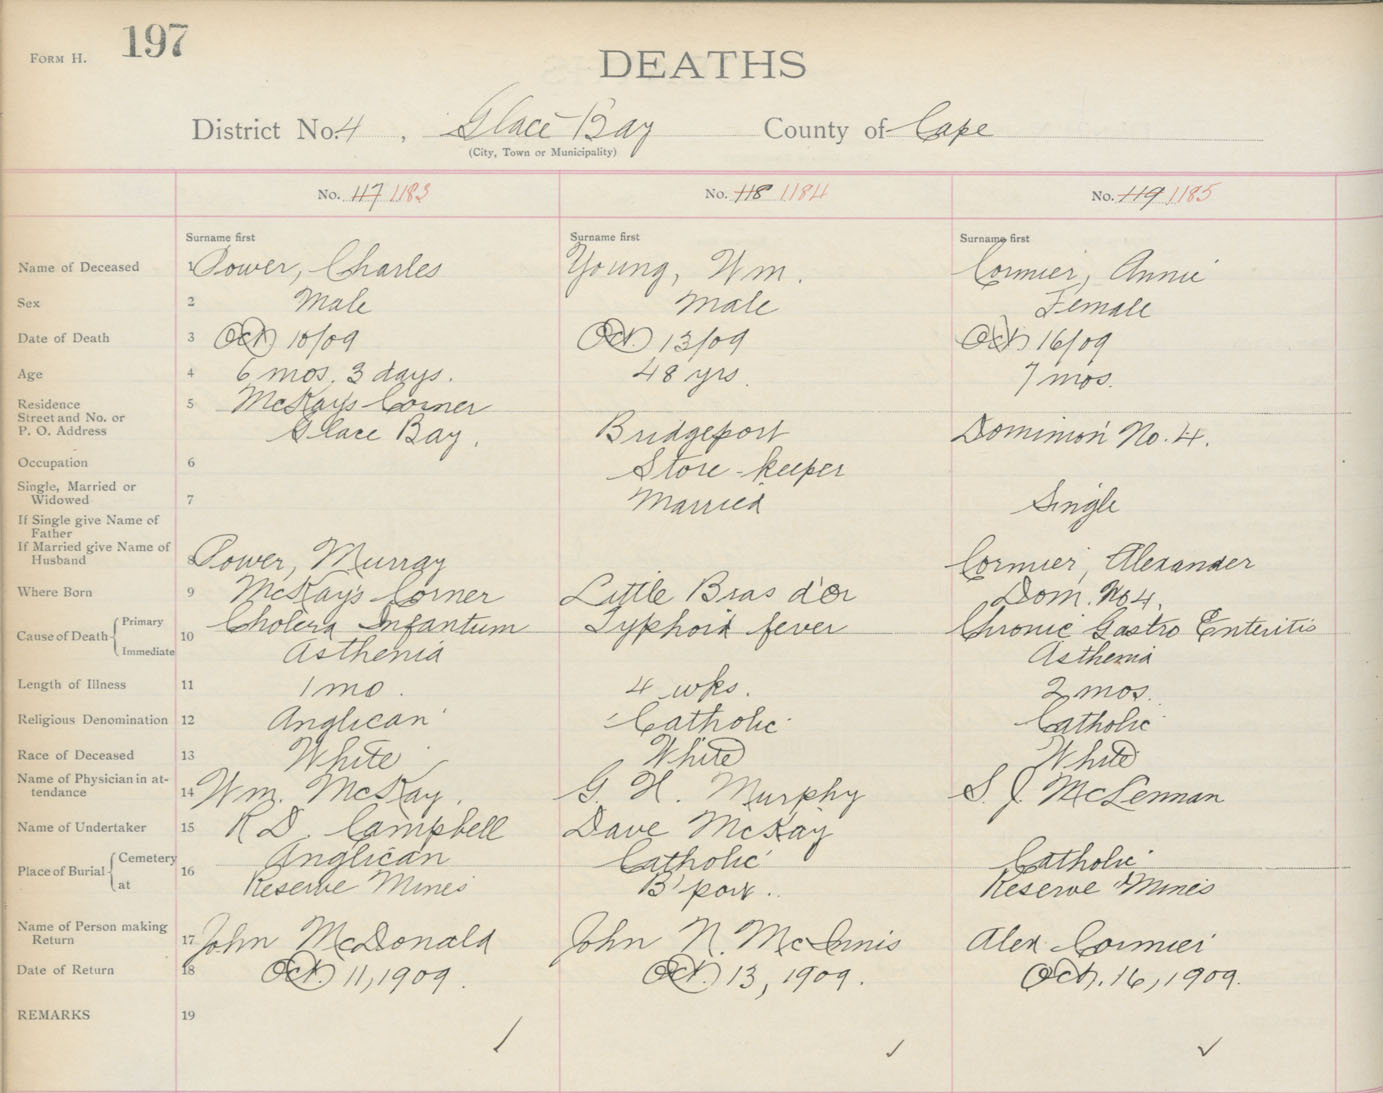 FORM H. 197
DEATHS
District No. 4, Glace Bay County of Cape
(City, Town or Municipality)
No. 117 1183 No. 118 1184 No. 119 1185
Surname first Surname first Surname first
Name of Deceased 1 Power, Charles Young, Wm. Cormier, Annie
Sex 2 Male Male Female
Date of Death 3 Oct 10/09 Oct. 13/09 Oct 16/09
Age 4 6 mos. 3 days. 48 yrs. 7 mos.
Residence 5 McKay's Corner
Street and No. or
P. O. Address Glace Bay. Bridgeport Dominion No. 4.
Occupation 6 Store-keeper
Single, Married or
Widowed 7 Married Single
If Single give Name of
Father
If Married give Name of
Husband 8 Power, Murray Cormier, Alexander
Where Born 9 McKay's Corner Little Bras d'Or Dom. No 4.
Cause of Death Primary 10 Cholera Infantum Typhoid fever Chronic Gastro Enteritis
Immediate Asthenia Asthenia
Length of Illness 11 1 mo. 4 wks. 2 mos.
Religious Denomination 12 Anglican Catholic Catholic
Race of Deceased 13 White White White
Name of Physician in at-
tendance 14 Wm. McKay. G. H. Murphy S. J. McLennan
Name of Undertaker 15 R D. Campbell Dave McKay
Place of Burial Cemetery 16 Anglican Catholic Catholic
at Reserve Mines B'port. Reserve Mines
Name of Person making
Return 17 John McDonald John N. McInnis Alex Cormier
Date of Return 18 Oct. 11, 1909. Oct. 13, 1909. Oct. 16, 1909.
REMARKS 19